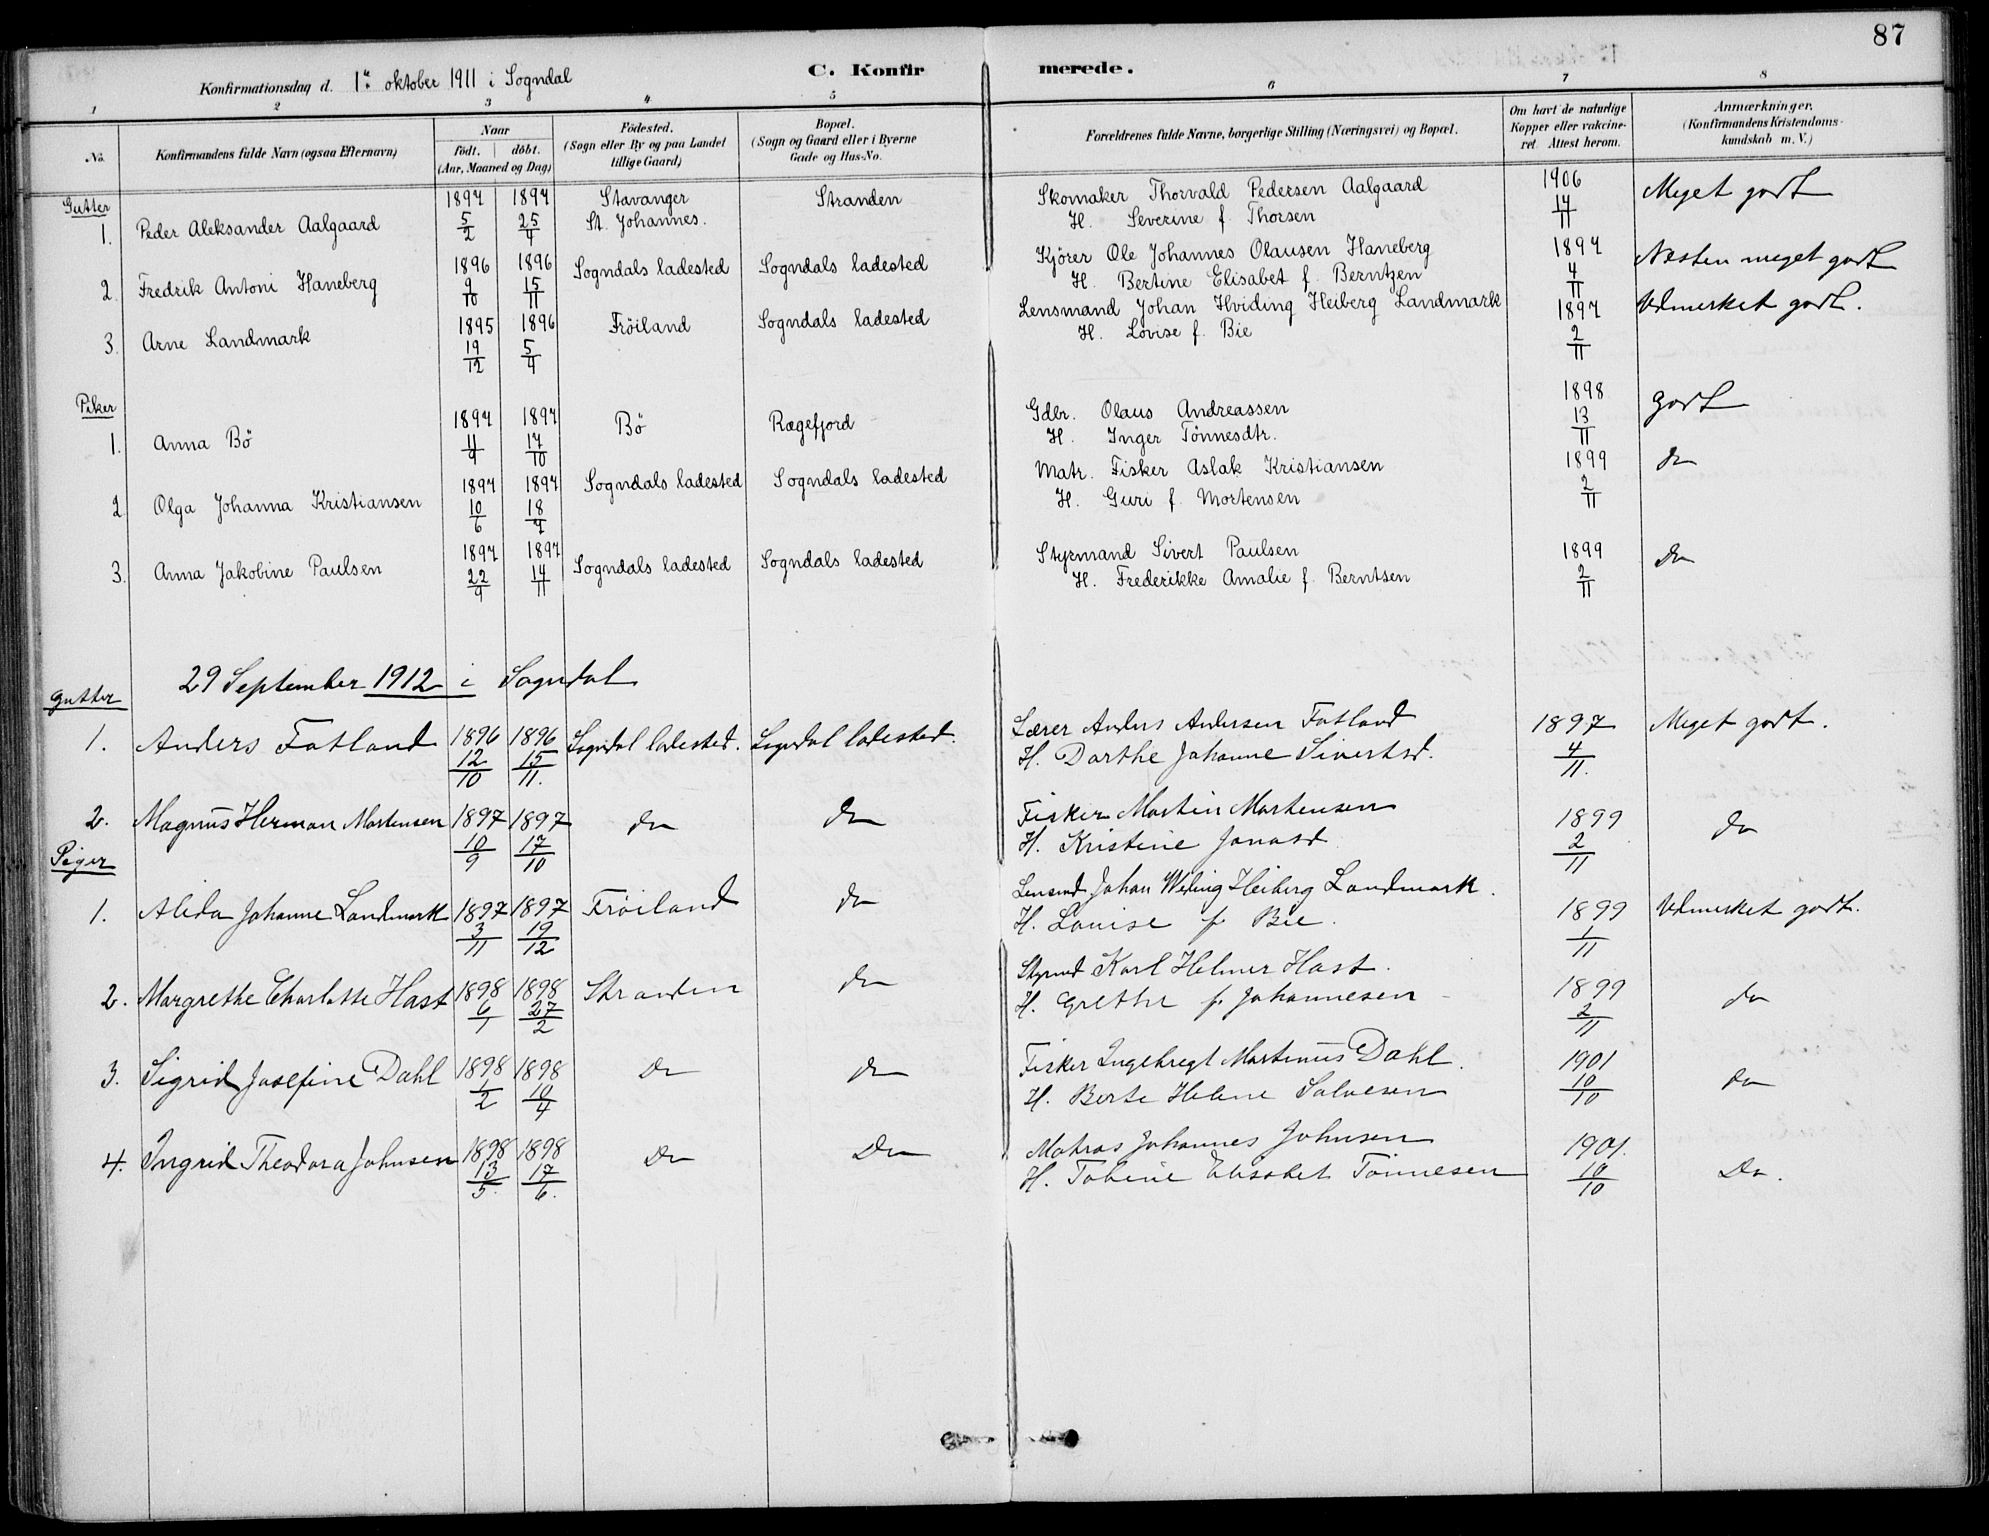 87
Konfirmationsdag d. 1ste oktober 1911 i Sogndal
C. Konfirmerede.
1 2 3 4 5 6 7 8
No. Konfirmandens fulde Navn (ogsaa Efternavn) Naar født. døbt. (Aar, Maaned og Dag) Fødested. (Sogn eller By og paa Landet tillige Gaard) Bopæl. (Sogn og Gaard eller i Byerne Gade og Hus-No. Forældrenes fulde Navne, borgerlige Stilling (Næringsvei) og Bopæl. Om havt de naturlige Kopper eller vakcineret. Attest herom. Anmærkninger. (Konfirmandens Kristendomskundskab m. V.)
Gutter 1897 1897 Stavanger Stranden Skomaker Thorvald Pedersen Aalgaard 1906 Meget godt
1. Peder Aleksander Aalgaard 5/2 25/4 St. Johannes. H. Severine f. Thorsen 14/11
1896 1896 Sogndals ladested Sogndals ladested Kjörer Ole Johannes Olausen Haneberg 1897 Næsten meget godt
2. Fredrik Antoni Haneberg 9/10 15/11 H. Bertine Elisabet f. Berntzen 4/11
1895 1896 Fröiland Sogndals ladested Lensmand Johan Hviding Heiberg Landmark 1897 Udmerket godt.
3. Arne Landmark 19/12 5/4 H. Lovise f. Bie 2/11
Piker 1897 1897 Bö Rægefjord Gdbr. Olaus Andreassen 1898 godt
1. Anna Bö 17/10 H. Inger Tönnesdtr. 13/11
1897 1897 Sogndals ladested Sogndals ladested Matr. Fisker Aslak Kristiansen 1899 do
2. Olga Johanna Kristiansen 10/6 18/7 H. Guri f. Mortensen 2/11
1897 1897 Sogndals ladested Sogndals ladested Styrmand Sivert Paulsen 1899 do
3. Anna Jakobine Paulsen 22/9 14/11 H. Frederikke Amalie f. Berntsen 2/11
29 September 1912 i Sogndal
Gutter
1. Anders Fatland 1896 1896 Sogndal ladested. Sogndal ladested. Lærer Anders Andersen Fatland 1897 Meget godt.
12/10 15/11. H. Dorthe Johanne Sivertsd. 4/11.
2. Magnus Herman Martensen 1897 1897 do do Fisker Martin Martensen 1899 do
10/9 17/10 H. Kristine Jonasd 2/11
Piger
1. Alida Johanne Landmark 1897 1897 Fröiland do Lensmd Johan Hviding Heiberg Landmark. 1899 Udmerket godt.
3/11 19/12 H. Louise f. Bie. 1/11
2. Margrethe Charlotte Hast 1898 1898 Stranden do Styrmd Karl Helmer Hast. 1899 do
6/1 27/2 H. Grethe f. Johannesen 2/11
3. Sigrid Josefine Dahl 1898 1898 do do Fisker Ingebregt Martinius Dahl. 1901 do
1/2 10/4 H. Berte Helene Salvesen 10/10
4. Ingrid Theodora Johnsen 1898 1898 Do Do Matros Johannes Johnsen 1901. Do.
13/5. 17/6. H. Tobine Elisabet Tönnesen 10/10